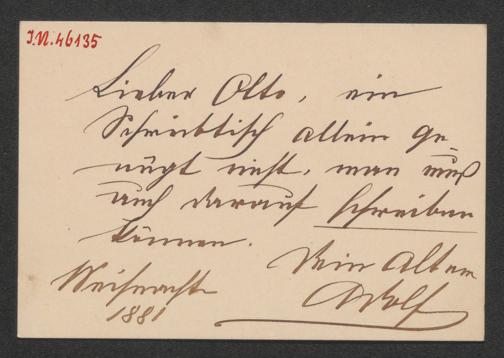 I.N. 46135
Lieber Otto, ein
Schreibtisch allein ge-
nügt nicht, man muß
auch darauf schreiben
können.
Dein alter
Adolf
Weihnacht
1881